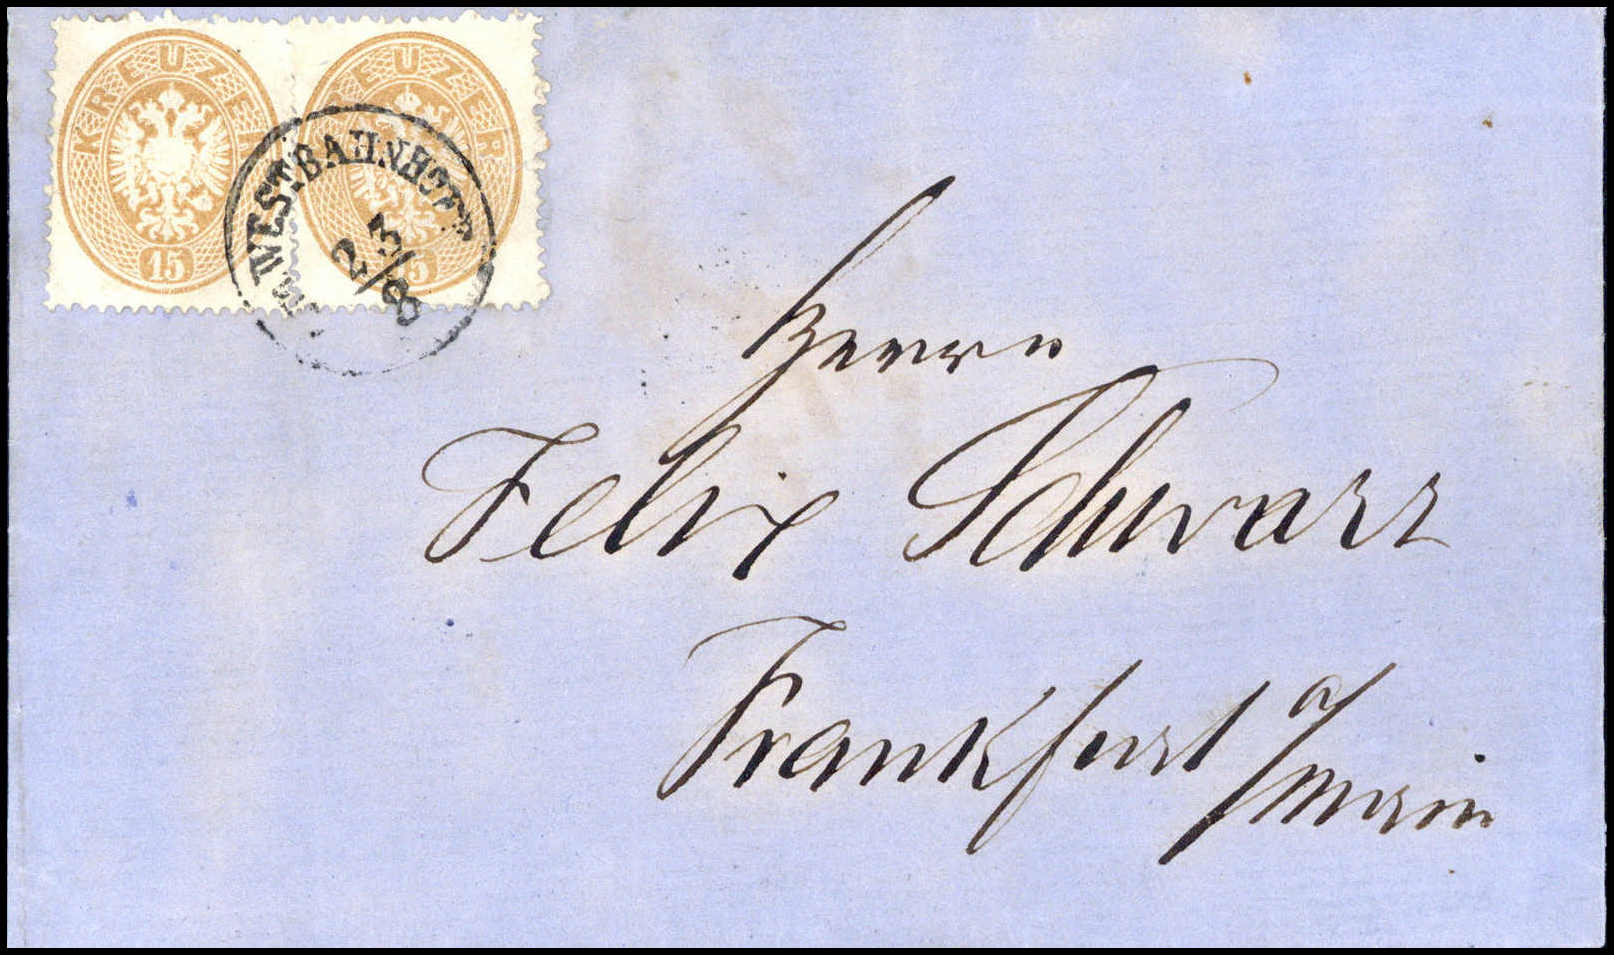 KREUZER
15
KREUZER
15
WESTBAHNHOF
23/8
Herrn
Felix Schwarz
Frankfurt a/Main